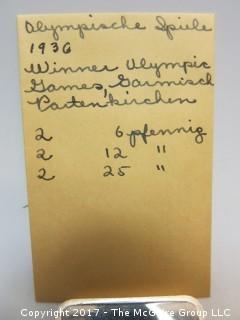 Olympische Spiele
1936
Winner Olympic
Games, Garmisch
Partenkirchen
2 6 pfennig
2 12 "
2 25 "
Copyright 2017 - The McGuire Group LLC